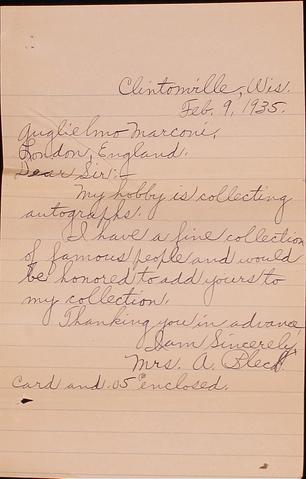 Clintonville, Wis.
Feb. 9, 1935.
Guglielmo Marconi,
London, England.
Dear Sir:-
My hobby is collecting
autographs.
I have a fine collection
of famous people and would
be honored to add yours to
my collection.
Thanking you in advance,
I am Sincerely,
Mrs. A.
Card and .05 enclosed.